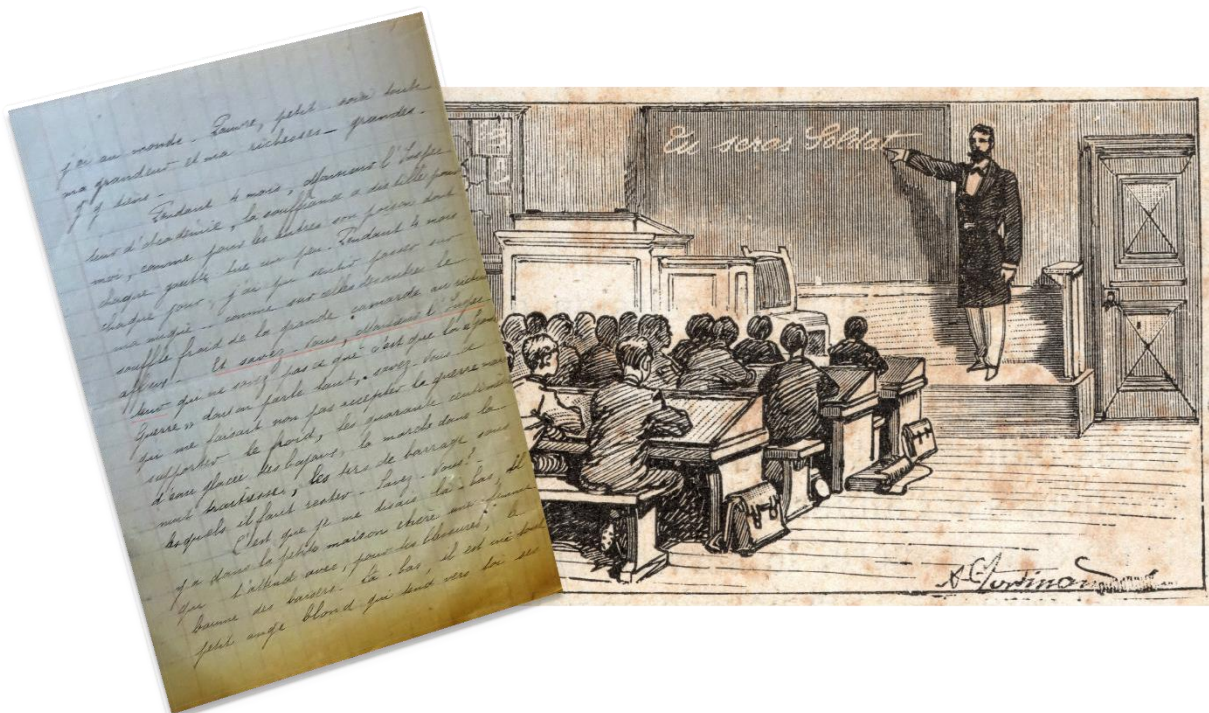 j'ai au monde - Pauvre, petit sois toute
ma grandeur et ma richesses - grandes -
J'y tiens -
Pendant 4 mois, Monsieur l'Inspec-
teur d'académie, la souffrance a distillé pour
moi, comme pour les autres son poison dont
chaque goutte tue un peu - Pendant 4 mois
chaque jour, j'ai pu sentir passer sur
ma nuque - comme sur celles d'autres le
souffle froid de la grande camarde au rictus
affreux - Et savez-vous, Monsieur l'Inspec-
teur qui ne savez pas ce que c'est que la
Guerre" dont on parle tant, savez-vous ce
qui me faisait non pas accepter la guerre mais
supporter le froid, les quarante centimètres
d'eau glacée des boyaux, la marche dans la
nuit traitresse, les tirs de barrage sous
lesquels il faut rester - Savez-vous? -
C'est que je me disais là-bas, il
y a dans la petite maison chère une femme
qui t'attend avec, pour tes blessures, le
baume des baisers. Là-bas, il est un tout
petit ange blond qui tend vers toi ses
Tu seras Soldat